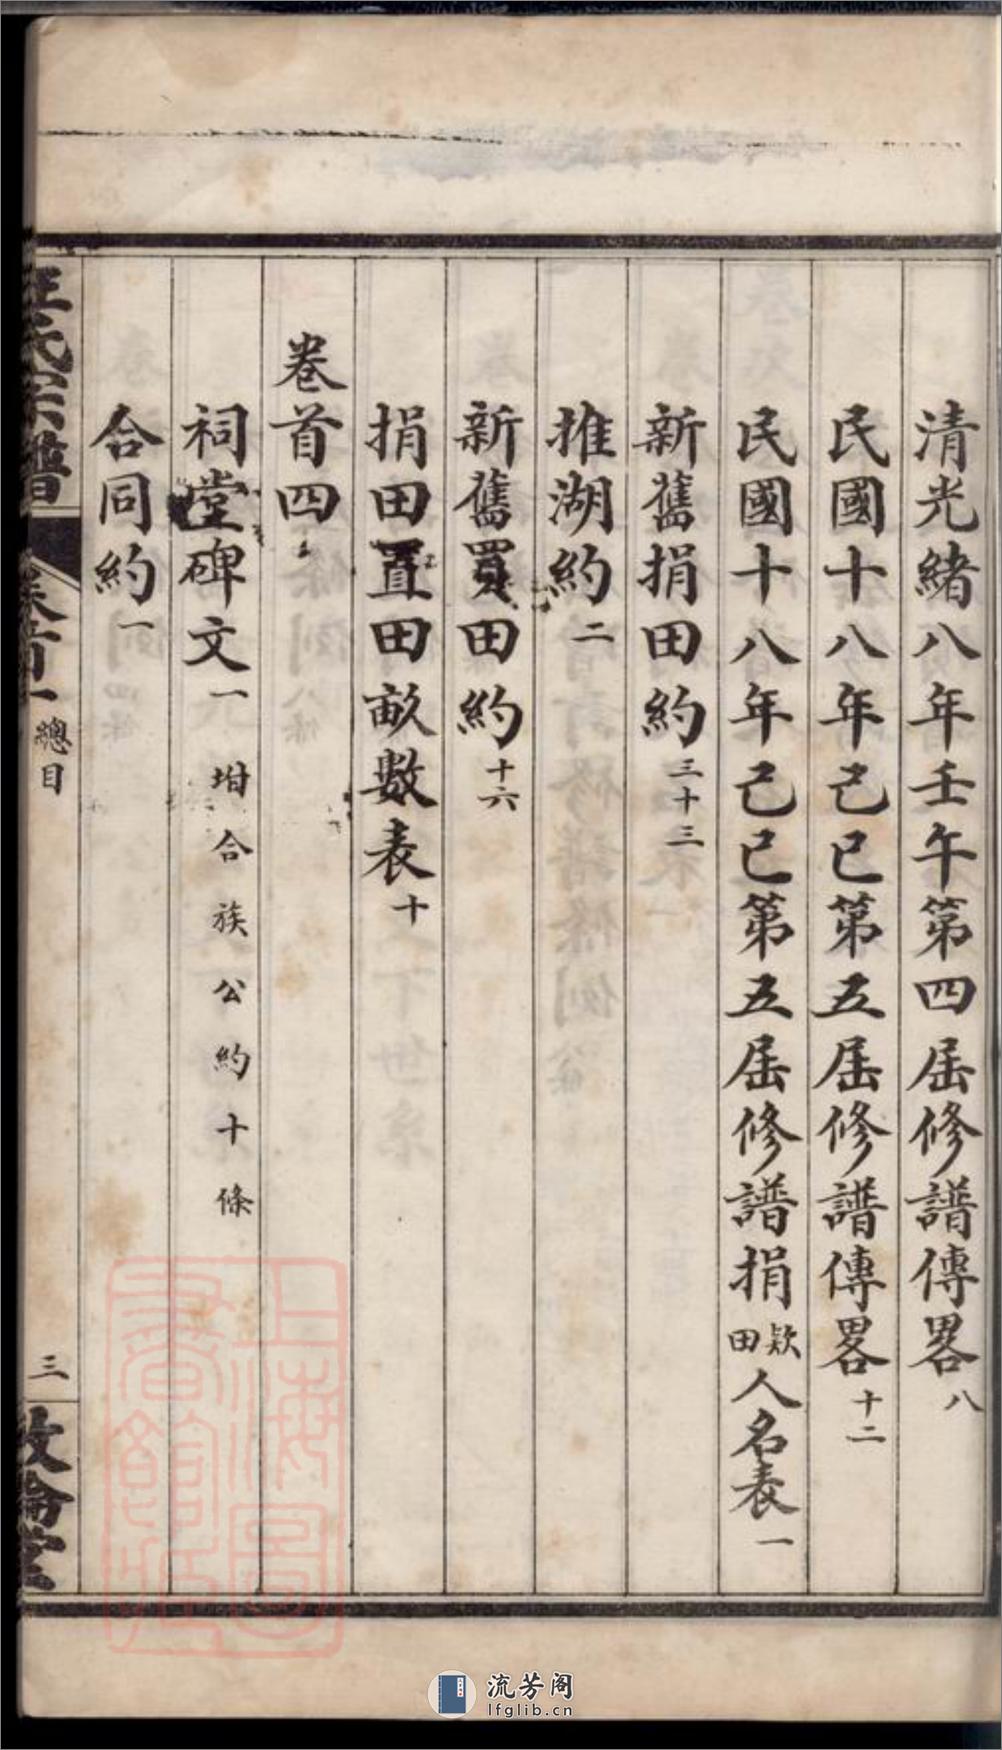 清光緒八年壬午第四屆修譜傳畧八
民國十八年己巳第五屆修譜傳畧十二
民國十八年己巳第五屆修譜捐欵田人名表一
新舊捐田約三十三
推湖約二
新舊買田約十六
捐田置田畝數表十
卷首四
祠堂碑文一 坿合族公約十條
合同約一
汪氏宗譜
卷首一
總目
三
敦倫堂
上海图
書館藏
流芳阁
lfglib.cn